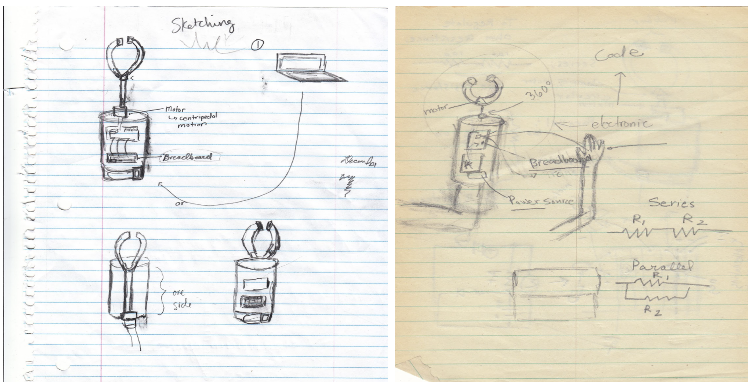 Sketching
①
Motor
↳ centripetal
motion
Breadboard
or
December
one
side
Code
360°
motor
electronic
Breadboard
Power source
Series
R₁ R₂
Parallel
R₁
R₂